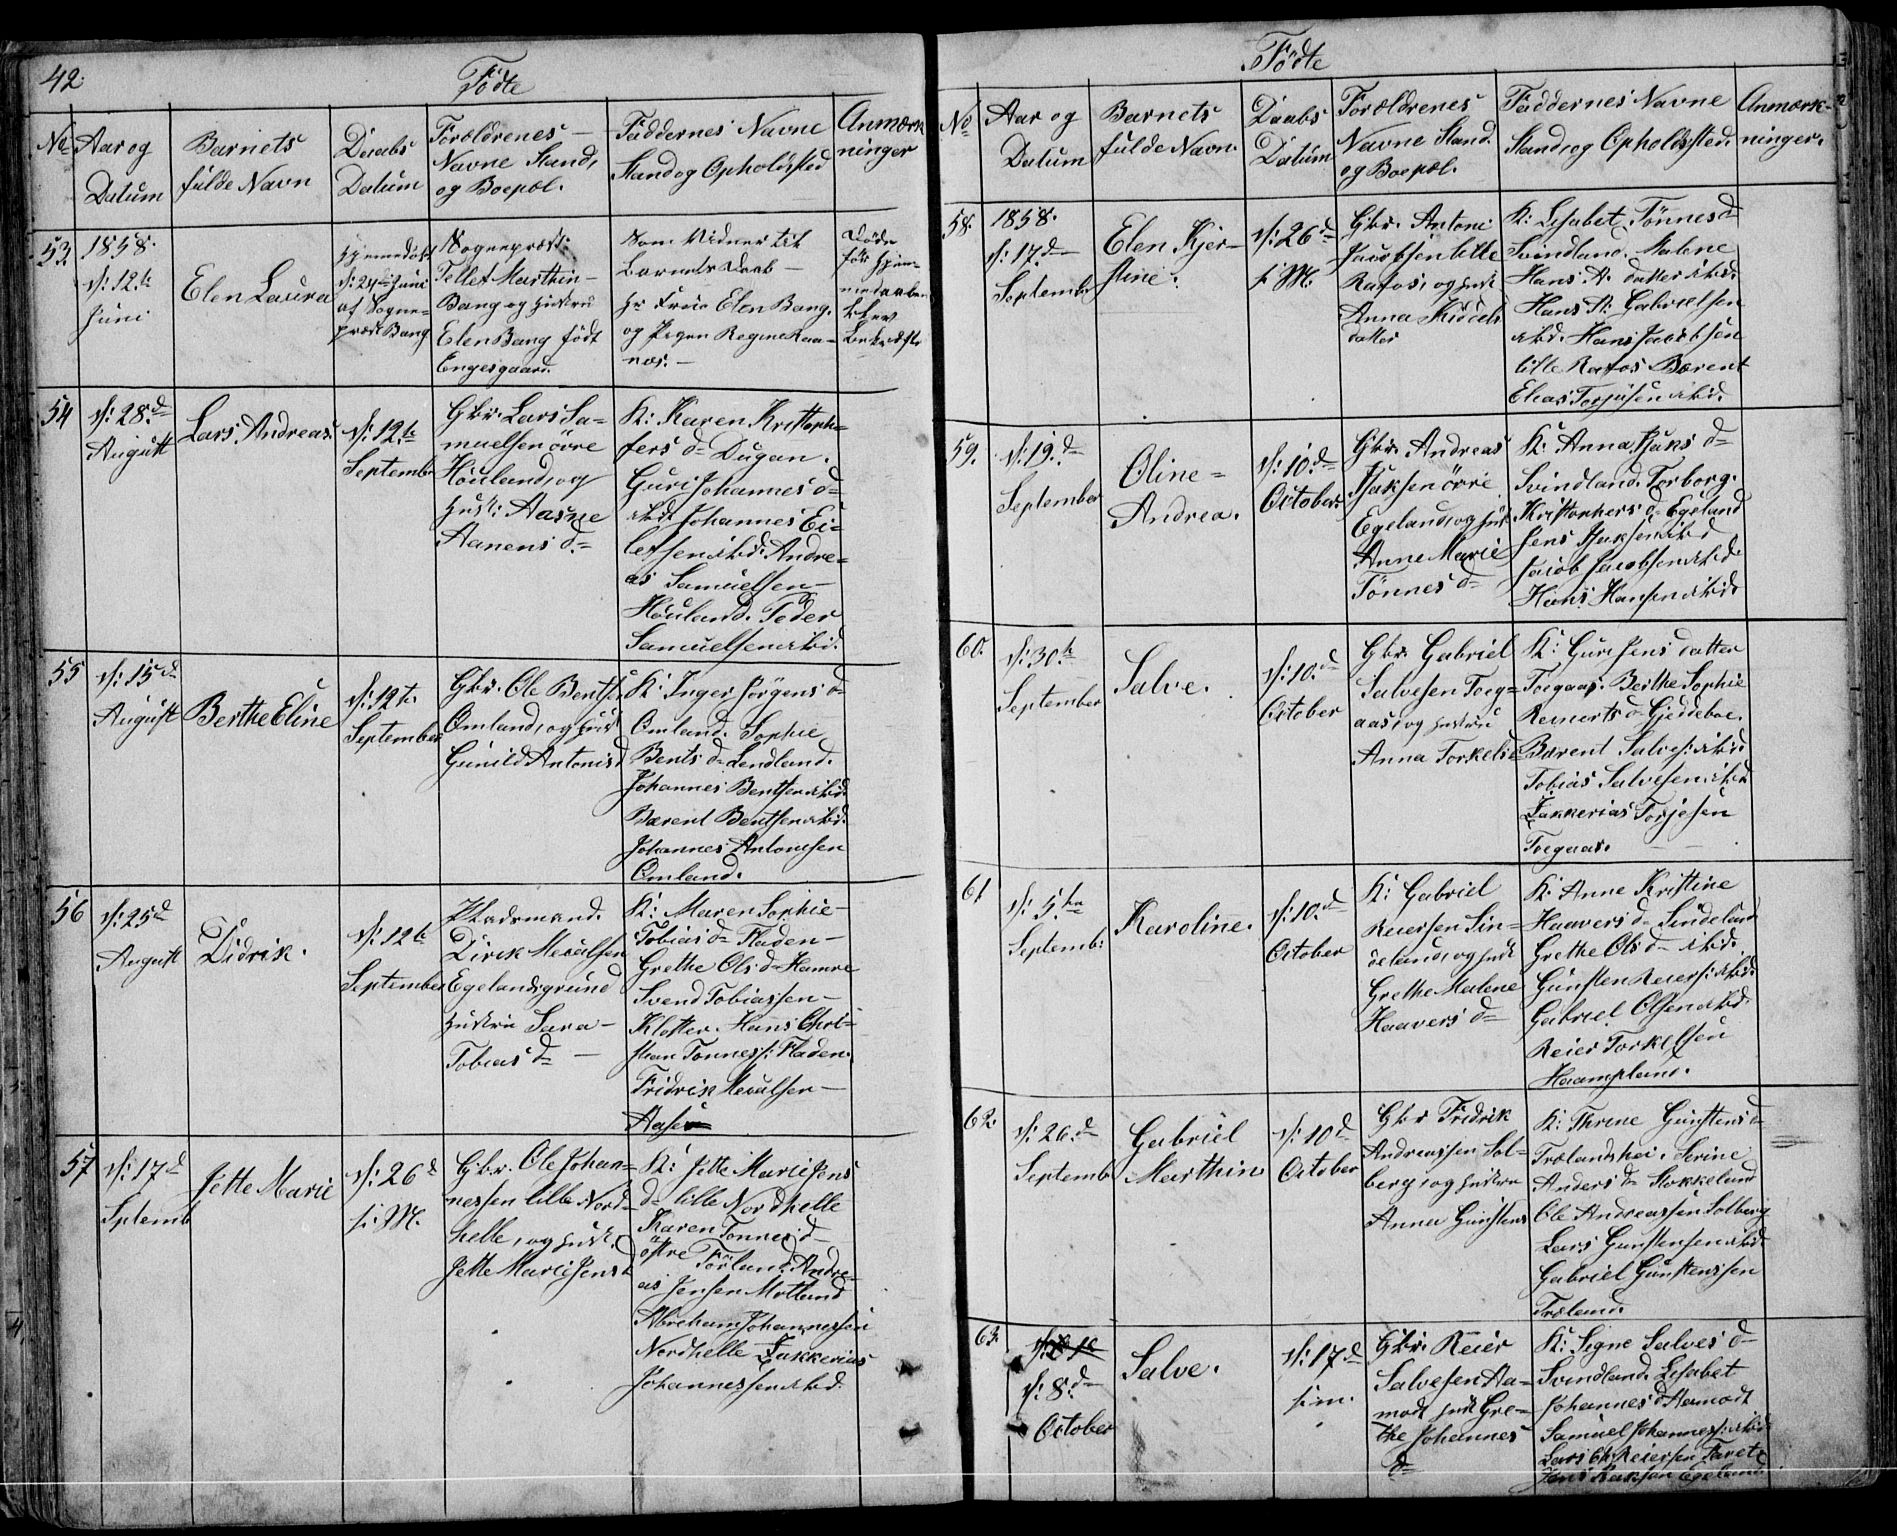 42.
Födte
No
Aar og
Datum
Barnets
fulde Navn
Daabs
Datum
Forældrenes
Navne Stand,
og Boepæl.
Faddernes Navne
Stand og Opholdsted
Anmærk
ninger
53
1858.
d: 12te
Juni
Elen Laura
Hjemmedöbt
d: 24de Juni
af Sogne=
præst Bang
Sognepræst
Tellef Marthin
Bang og Hustru
Elen Bang födt
Engesgaard.
Som Vidner til
Barnets Daab –
Hr Frue Elen Bang.
og Pigen Regine Raa=
næs. –
54
d: 28de
August
Lars Andreas.
d: 12te
September
Gbr. Lars Sa=
muelsen övre
Höuland, og
Hust: Aasne
Aanens d.=
K: Karen Kristoph=
fers d= Dugan.
Guri Johannes d=
ibid. Johannes Ei=
lefsen ibid. Andre=
as Samuelsen
Höuland. Peder
Samuelsen ibid.
55
d: 15de
August
Berthe Eline
d: 12te
September
Gbr. Ole Bents.
Omland, og Hust
Gunild Antonis d
K: Inger Jörgens d=
Omland. Sophie
Bents d= Lendland.
Johannes Bentsen ibid.
Bærent Bentsen ibid.
Johannes Antonisen
Omland.
56
d: 25de
August
Didrik.
d: 12te
September
Pladsmand.
Dirik Mevelsen
Egelandsgrund
Hustru Sara –
Tobias d= –
K: Maren Sophie –
Tobias d= Fladen –
Grethe Ols d= Hamre
Svend Tobiassen –
Klotter. Hans Chri=
stian Tönness: Fladen.
Fridrik Mevelsen –
57
d: 17de
Septemb
Jette Marie
d: 26de
i M.
Gbr. Ole Johan=
nessen lille Nord=
helle, og Hust.
Jette Marie Jens d
K: Jette Marie Jens
d= lille Nordhelle
Karen Tönnes d=
östre Förland. Andre=
as Jensen Motland
Abreham Johannessen
Nordhelle Zakkerias
Johannessen ibid.
Födte
No
Aar og
Datum
Barnets
fulde Navn.
Daabs
Datum
Forældrenes
Navne Stand.
og Boepæl.
Faddernes Navne
Stand, og Opholdssted.
Anmærk=
ninger.
58.
1858.
d: 17de
Septembr
Elen Kjer=
stine.
d: 26de
i M:
Gbr. Antoni
Jacobsen lille
Rafos, og Hust
Anna Kiddels
datter
K: Lisabet Tönnes d=
Svindland. Malene
Hans A: datter ibid.
Hans A: Gabrielsen
ibid. Hans Jacobsen
lille Rafos Bærent
Elias Torjusen ibid.
59.
d: 19de
September
Oline=
Andrea.
d: 10de
October.
Gbr. Andreas
Isaksen övre
Egeland, og Hust
Anne Marie
Tönnes d=
K: Anna Isaks d=
Svindland. Torborg.
Kristophers d= Egeland
Jens Isaksen ibid
Jacob Jacobsen ibid.
Hans Hansen ibid.
60.
d: 30te
September
Salve.
d: 10de
October
Gbr. Gabriel
Salvesen Toeg=
aas, og Hustru
Anna Torkels d=
K: Guri Jens datter
Toegaas. Berthe Sophie
Reinerts d= Gjeddeboe.
Bærent Salves: ibid.
Tobias Salvesen ibid.
Zakkerias Torjesen
Toegaas.
61
d: 5te
Septemb:
Karoline.
d: 10de
October
K: Gabriel
Reiersen Sin=
deland, og Hust
Grethe Malene
Haavers d=
K: Anne Kristine
Haavers d= Sindeland
Grethe Ols d= ibid.
Gunsten Reiers: ibid.
Gabriel Olsen ibid.
Reier Torkelsen
Haampland.
62.
d: 26de
Septemb
Gabriel
Marthin
d: 10de
October
Gbr Fridrik
Andreassen Sol=
berg, og Hustru
Anna Gunstens
K: Thrine Gunstens d=
Trælandshei. Serine
Anders d= Stokkeland
Ole Andreassen Solberg
Lars Gunstensen ibid.
Gabriel Gunstenssen
Træland.
63.
d: 8de
October
Salve.
d: 17de
i m.
Gbr. Reier
Salvesen Aa=
modt Hust Gre=
the Johannes
d=
K: Signe Salves d=
Svindland. Lisabet
Johannes d Aamodt
Samuel Johanness: ibid.
Lars Chr Reiersen
Jens Isaksen Egeland